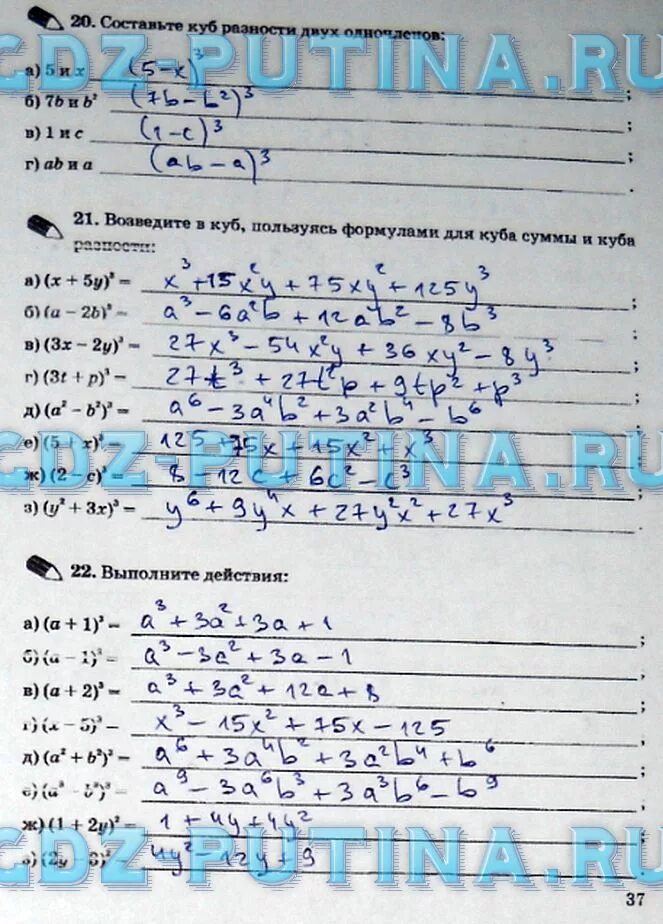 20. Составьте куб разности двух одночленов:
а) 5 и x (5 – x)³ ;
GDZ-PUTINA.RU
б) 7b и b² (7b – b²)³ ;
в) 1 и c (1 – c)³ ;
г) ab и a (ab – a)³ .
21. Возведите в куб, пользуясь формулами для куба суммы и куба
разности:
а) (x + 5y)³ = x³ + 15x²y + 75xy² + 125y³ ;
б) (a – 2b)³ = a³ – 6a²b + 12ab² – 8b³ ;
в) (3x – 2y)³ = 27x³ – 54x²y + 36xy² – 8y³ ;
г) (3t + p)³ = 27t³ + 27t²p + 9tp² + p³ ;
д) (a² – b²)³ = a⁶ – 3a⁴b² + 3a²b⁴ – b⁶ ;
е) (5 + x)³ = 125 + 75x + 15x² + x³ ;
GDZ-PUTINA.RU
ж) (2 – c)³ = 8 – 12c + 6c² – c³ ;
з) (y² + 3x)³ = y⁶ + 9y⁴x + 27y²x² + 27x³ .
22. Выполните действия:
а) (a + 1)³ = a³ + 3a² + 3a + 1 ;
б) (a – 1)³ = a³ – 3a² + 3a – 1 ;
в) (a + 2)³ = a³ + 3a² + 12a + 8 ;
г) (x – 5)³ = x³ – 15x² + 75x – 125 ;
д) (a² + b²)³ = a⁶ + 3a⁴b² + 3a²b⁴ + b⁶ ;
е) (a³ – b³)³ = a⁹ – 3a⁶b³ + 3a³b⁶ – b⁹ ;
ж) (1 + 2y)² = 1 + 4y + 4y² ;
GDZ-PUTINA.RU
з) (2y – 3)² = 4y² – 12y + 9 .
37